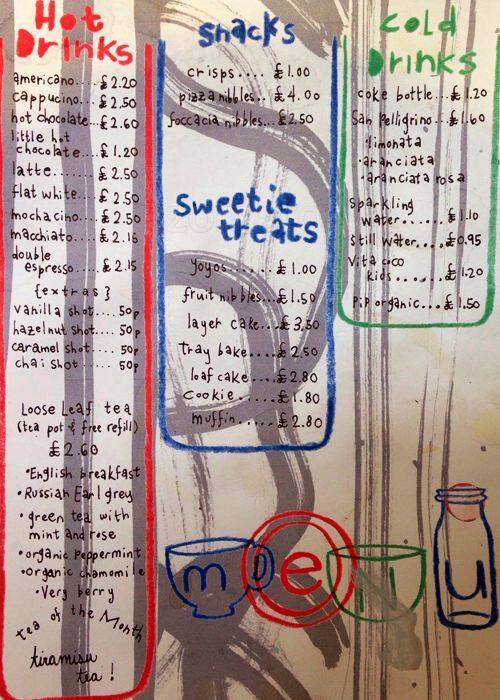 Hot
Drinks
americano....£2.20
cappucino...£2.50
hot chocolate..£2.60
little hot
chocolate...£1.20
latte......£2.50
flat white...£2.50
mochacino...£2.50
macchiato....£2.15
double
espresso....£2.15
{extras}
vanilla shot....50p
hazelnut shot....50p
caramel shot.... 50p
chai shot..... 50p
Loose Leaf tea
(tea pot & free refill)
£2.60
•English breakfast
•Russian Earl grey
•green tea with
mint and rose
•organic peppermint
•organic chamomile
•Very berry
tea of the Month
tiramisu
tea!
Snacks
crisps.... £1.00
pizza nibbles...£4.00
foccacia nibbles..£2.50
Sweetie
treats
yoyos.......£1.00
fruit nibbles...£1.50
layer cake...£3.50
Tray bake.....£2.50
loaf cake....£2.80
cookie.....£1.80
muffin.....£2.80
Cold
Drinks
coke bottle...£1.20
San Pelligrino..£1.60
•limonata
•aranciata
•aranciata rosa
sparkling
water......£1.10
still water....£0.95
Vita coco
kids......£1.20
pip organic...£1.50
menu